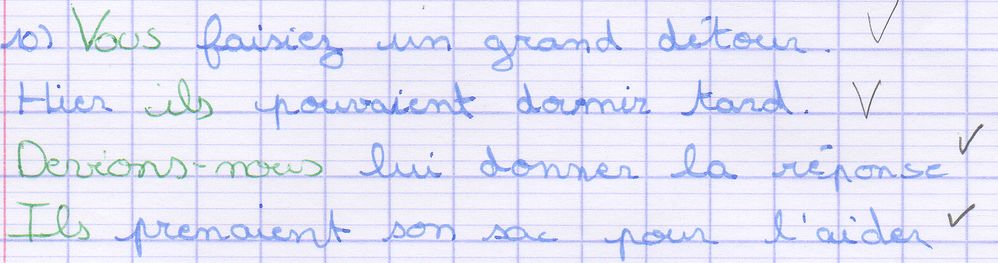 10) Vous faisiez un grand détour.
Hier ils pouvaient dormir tard.
Devions-nous lui donner la réponse
Ils prenaient son sac pour l'aider